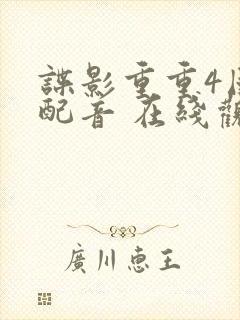 諜影重重4國
配音 在綫觀
廣川惠王